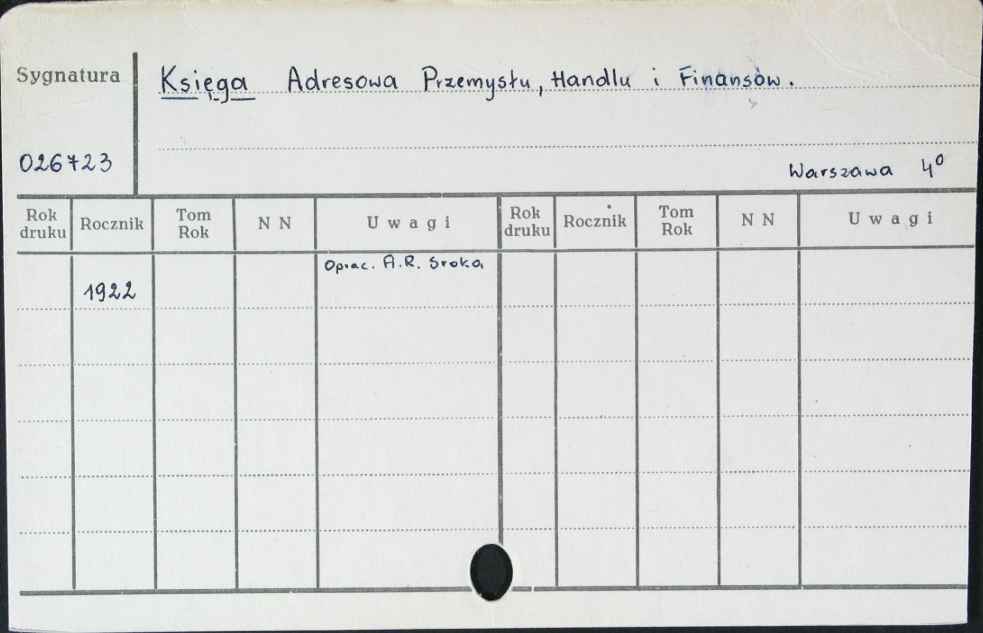 Sygnatura
Księga Adresowa Przemysłu, Handlu i Finansów.
026723
Warszawa 4⁰
Rok druku Rocznik Tom Rok N N Uwagi Rok druku Rocznik Tom Rok N N Uwagi
Oprac. A.R. Sroka
1922